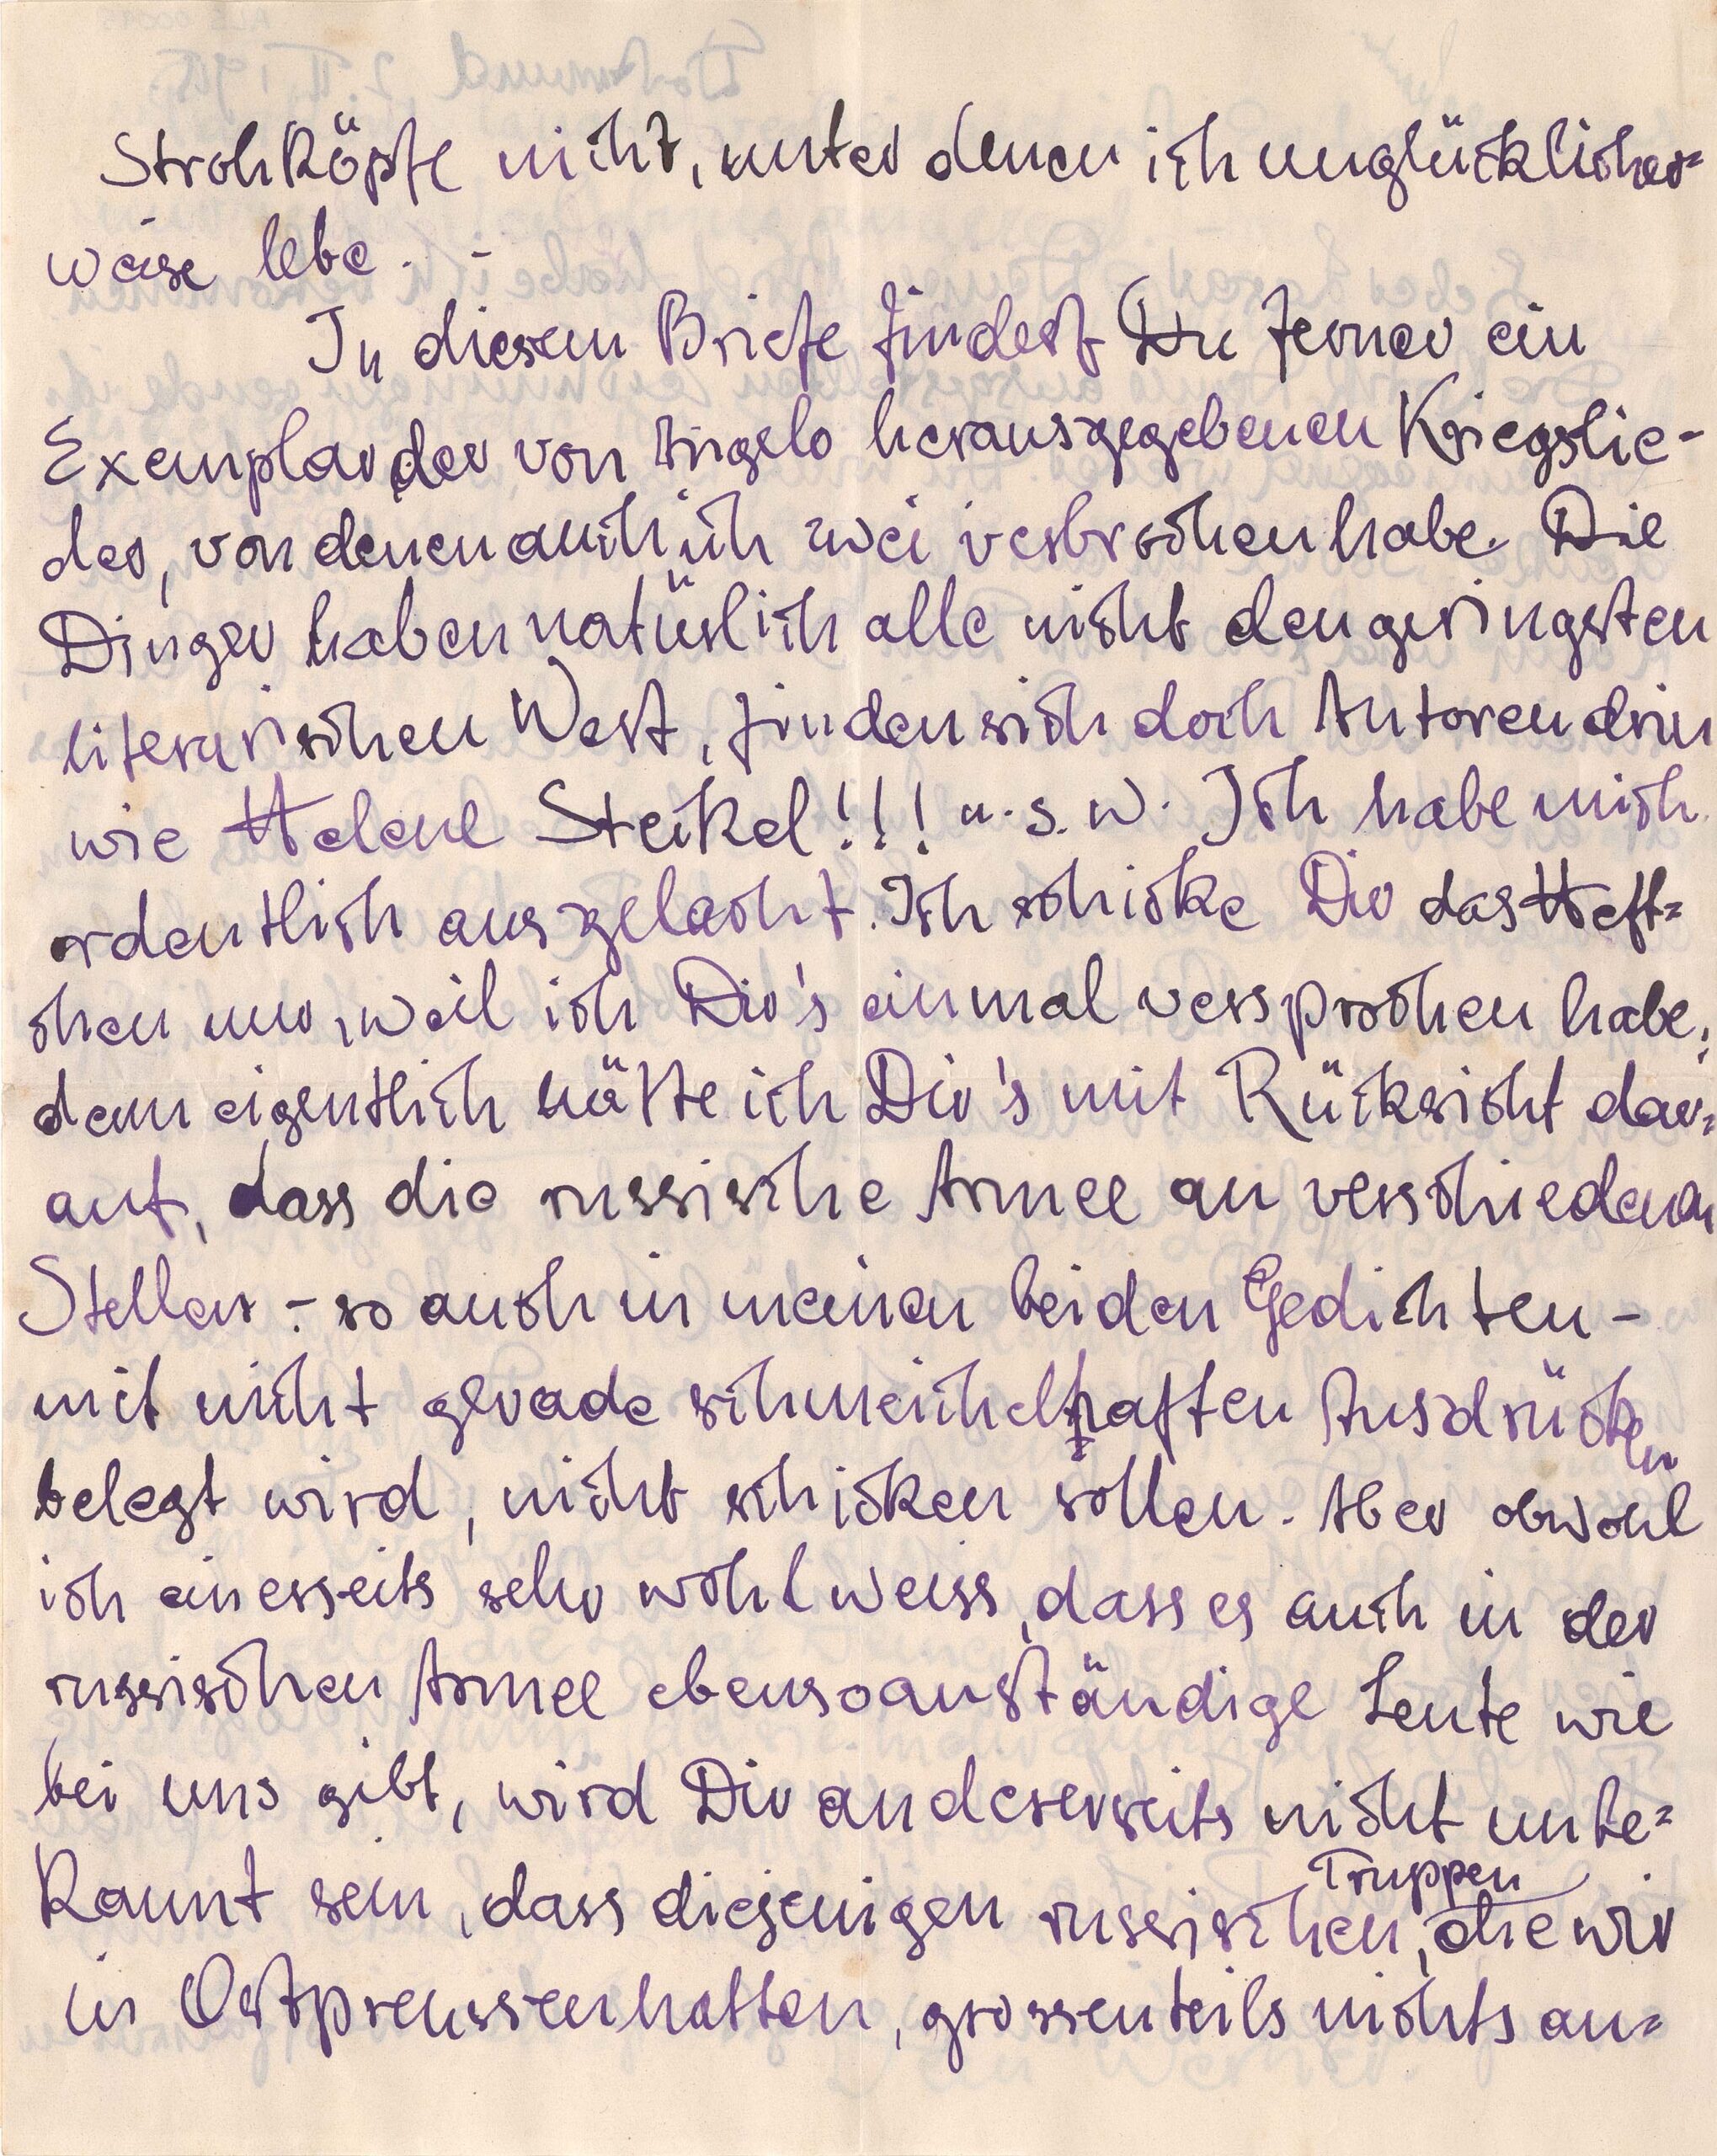 Strohköpfe nicht, unter denen ich unglücklicher=
weise lebe. -
In diesem Briefe findest Du ferner ein
Exemplar der von Angelo herausgegebenen Kriegslie-
der, von denen auch ich zwei verbrochen habe. Die
Dinger haben natürlich alle nicht den geringsten
literarischen Wert, finden sich doch Autoren drin
wie Helene Steikel!!! u. s. w. Ich habe mich
ordentlich ausgelacht. Ich schicke Dir das Heft=
chen nur, weil ich Dir's einmal versprochen habe;
denn eigentlich hätte ich Dir's mit Rücksicht dar=
auf, dass die russische Armee an verschiedenen
Stellen - so auch in meinen beiden Gedichten -
mit nicht gerade schmeichelhaften Ausdrücken
belegt wird, nicht schicken sollen. Aber obwohl
ich einerseits sehr wohl weiss, dass es auch in der
russischen Armee ebenso anständige Leute wie
bei uns gibt, wird Dir andererseits nicht unbe=
kannt sein, dass diejenigen russischen Truppen, die wir
in Ostpreussen hatten, grossenteils nichts an=